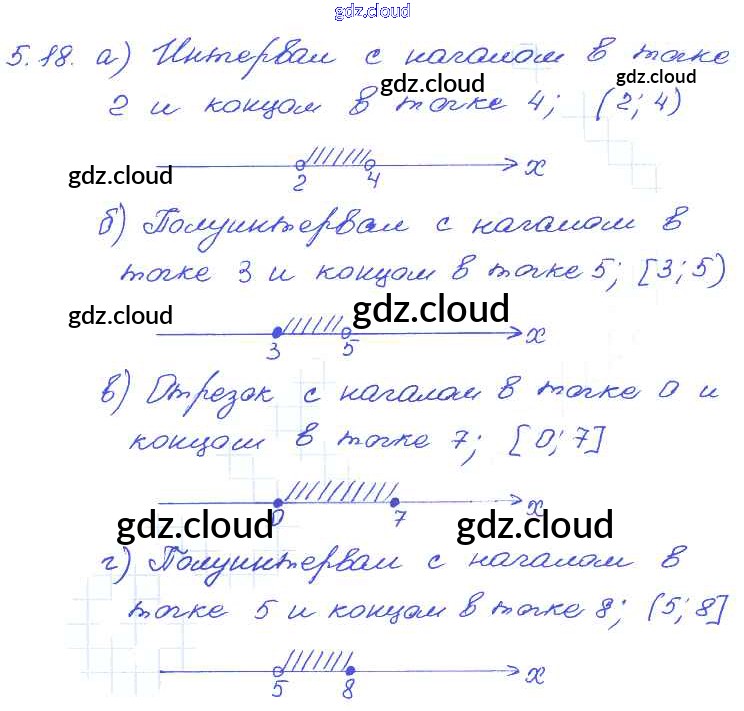 gdz.cloud
5.18. а) Интервал с началом в точке
gdz.cloud gdz.cloud
2 и концом в точке 4; (2; 4)
gdz.cloud
2 4 x
б) Полуинтервал с началом в
точке 3 и концом в точке 5; [3; 5)
gdz.cloud gdz.cloud
3 5 x
в) Отрезок с началом в точке 0 и
концом в точке 7; [0; 7]
0 7 x
gdz.cloud gdz.cloud
г) Полуинтервал с началом в
точке 5 и концом в точке 8; (5; 8]
5 8 x